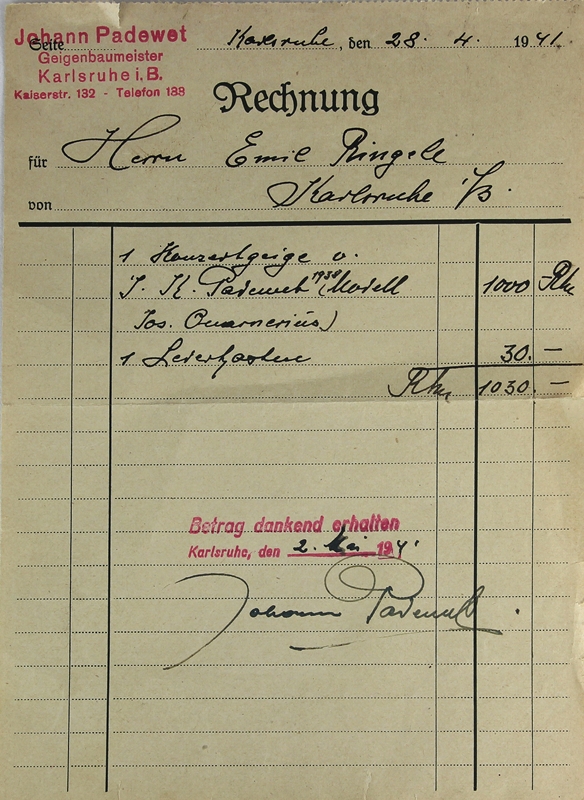 Johann Padewet
Geigenbaumeister
Karlsruhe i. B.
Kaiserstr. 132 - Telefon 188
Seite
Karlsruhe, den 28. 4. 1941.
Rechnung
für Herrn Emil Ringele
von Karlsruhe i/B.
1 Konzertgeige v.
J. K. Padewet 1938 (Modell 1000 Rm
Jos. Quarnerius)
1 Lederkasten 30. —
Rm 1030. —
Betrag dankend erhalten
Karlsruhe, den 2. Mai 1941
Johann Padewet